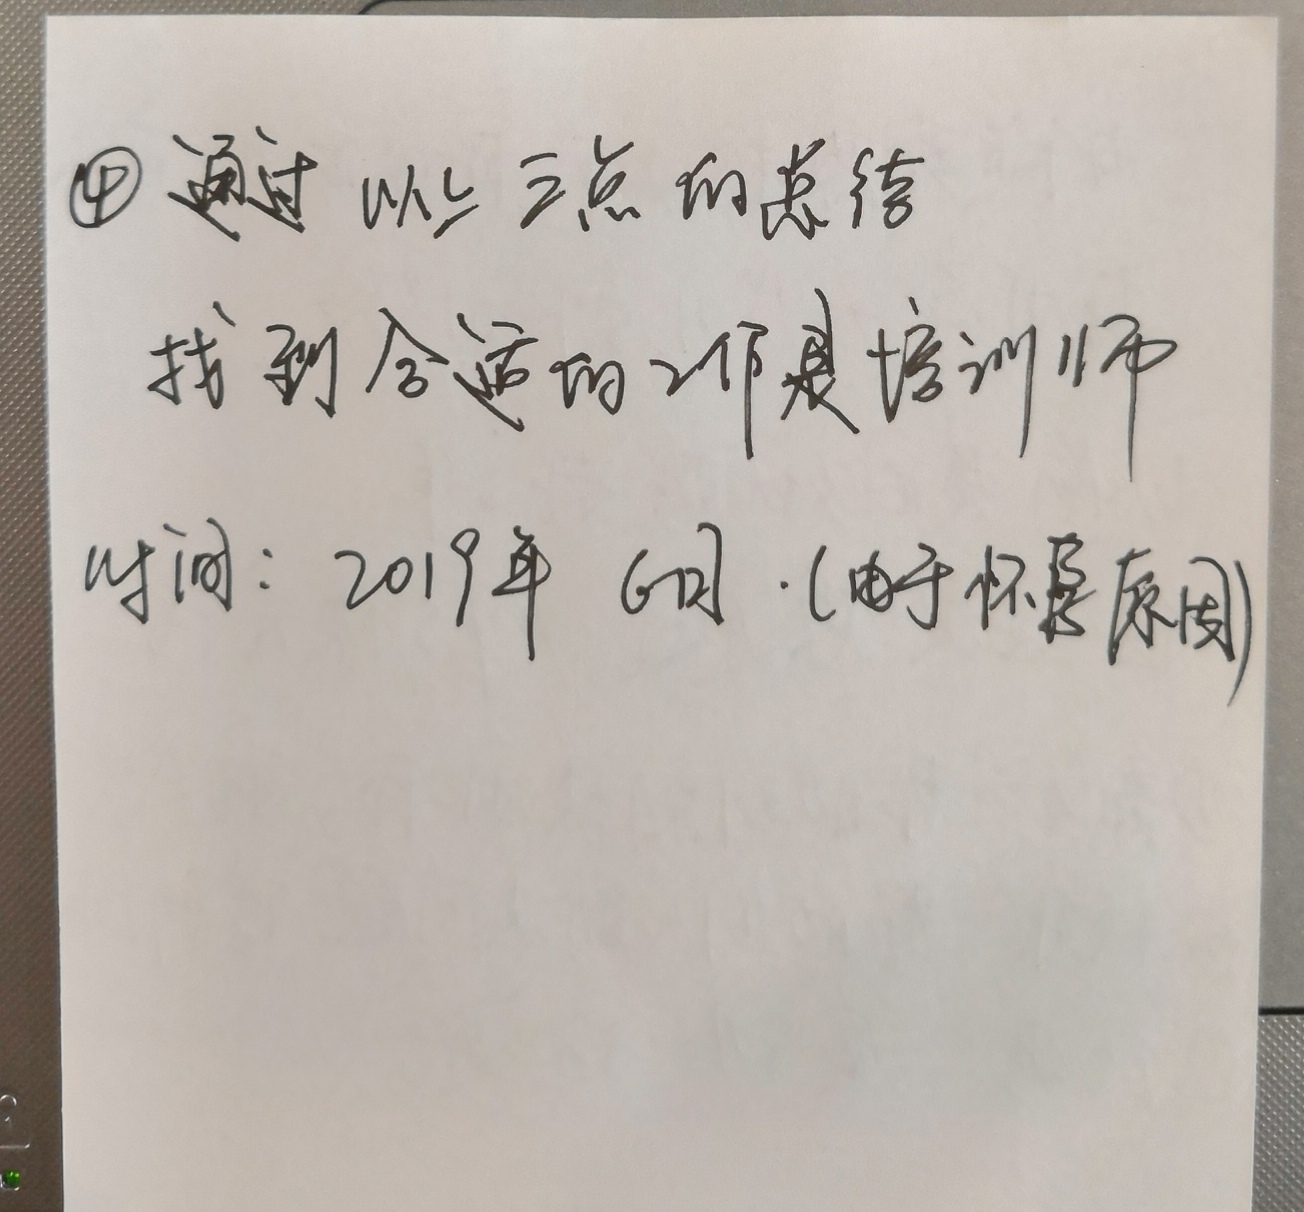 ④通过以上三点的总结
找到合适的工作是培训师
时间：2019年6月.(由于怀孕原因)